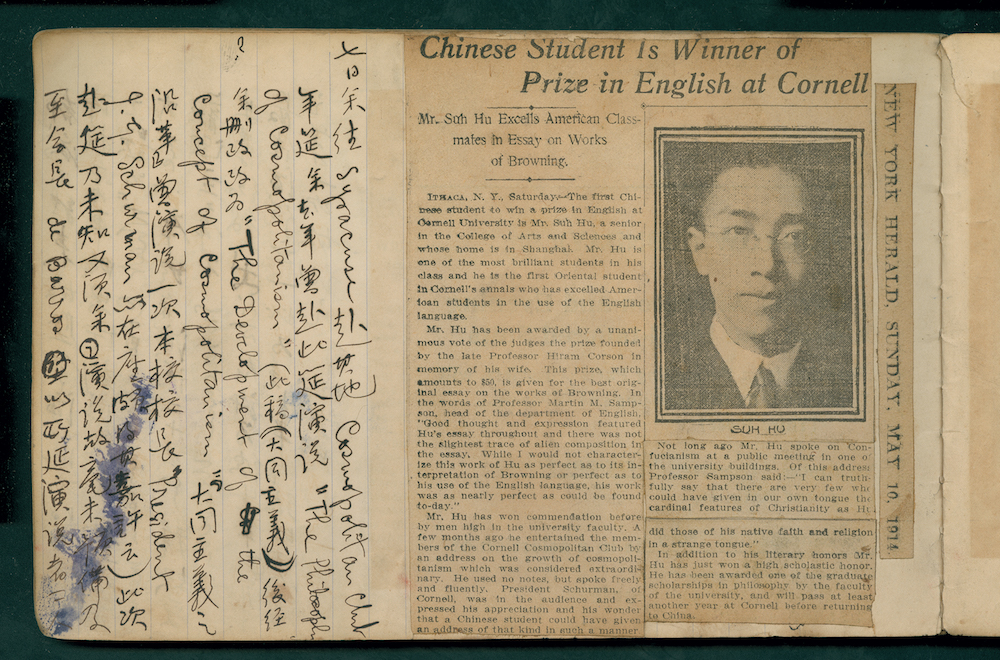 七日余往 Syracuse 赴其地 Cosmopolitan Club
年筵余去年曾赴此筵演說 "The Philosophy
of Cosmopolitanism" (此稿(大同主義)後經
?
余刪改改為 "The Development of the
Concept of Cosmopolitanism" 大同主義之
沿革曾演說一次本校校長 President
Schurman 亦在座 嘉許云)此次
赴筵乃未知又須余演說故毫未預備及
至會長 演說
Chinese Student Is Winner of
Prize in English at Cornell
Mr. Suh Hu Excells American Class-
mates in Essay on Works
of Browning.
ITHACA, N. Y., Saturday.—The first Chi-
nese student to win a prize in English at
Cornell University is Mr. Suh Hu, a senior
in the College of Arts and Sciences and
whose home is in Shanghai. Mr. Hu is
one of the most brilliant students in his
class and he is the first Oriental student
in Cornell's annals who has excelled Amer-
ican students in the use of the English
language.
Mr. Hu has been awarded by a unani-
mous vote of the judges the prize founded
by the late Professor Hiram Corson in
memory of his wife. This prize, which
amounts to $50, is given for the best orig-
inal essay on the works of Browning. In
the words of Professor Martin M. Samp-
son, head of the department of English,
"Good thought and expression featured
Hu's essay throughout and there was not
the slightest trace of alien composition in
the essay. While I would not character-
ize this work of Hu as perfect as to its in-
terpretation of Browning or perfect as to
his use of the English language, his work
was as nearly perfect as could be found
to-day."
Mr. Hu has won commendation before
by men high in the university faculty. A
few months ago he entertained the mem-
bers of the Cornell Cosmopolitan Club by
an address on the growth of cosmopoli-
tanism which was considered extraordi-
nary. He used no notes, but spoke freely
and fluently. President Schurman, of
Cornell, was in the audience and ex-
pressed his appreciation and his wonder
that a Chinese student could have given
an address of that kind in such a manner
SUH HU
Not long ago Mr. Hu spoke on Con-
fucianism at a public meeting in one of
the university buildings. Of this address
Professor Sampson said:—"I can truth-
fully say that there are very few who
could have given in our own tongue the
cardinal features of Christianity as Hu
did those of his native faith and religion
in a strange tongue."
In addition to his literary honors Mr.
Hu has just won a high scholastic honor.
He has been awarded one of the graduate
scholarships in philosophy by the faculty
of the university, and will pass at least
another year at Cornell before returning
to China.
NEW YORK HERALD, SUNDAY, MAY 10, 1914.